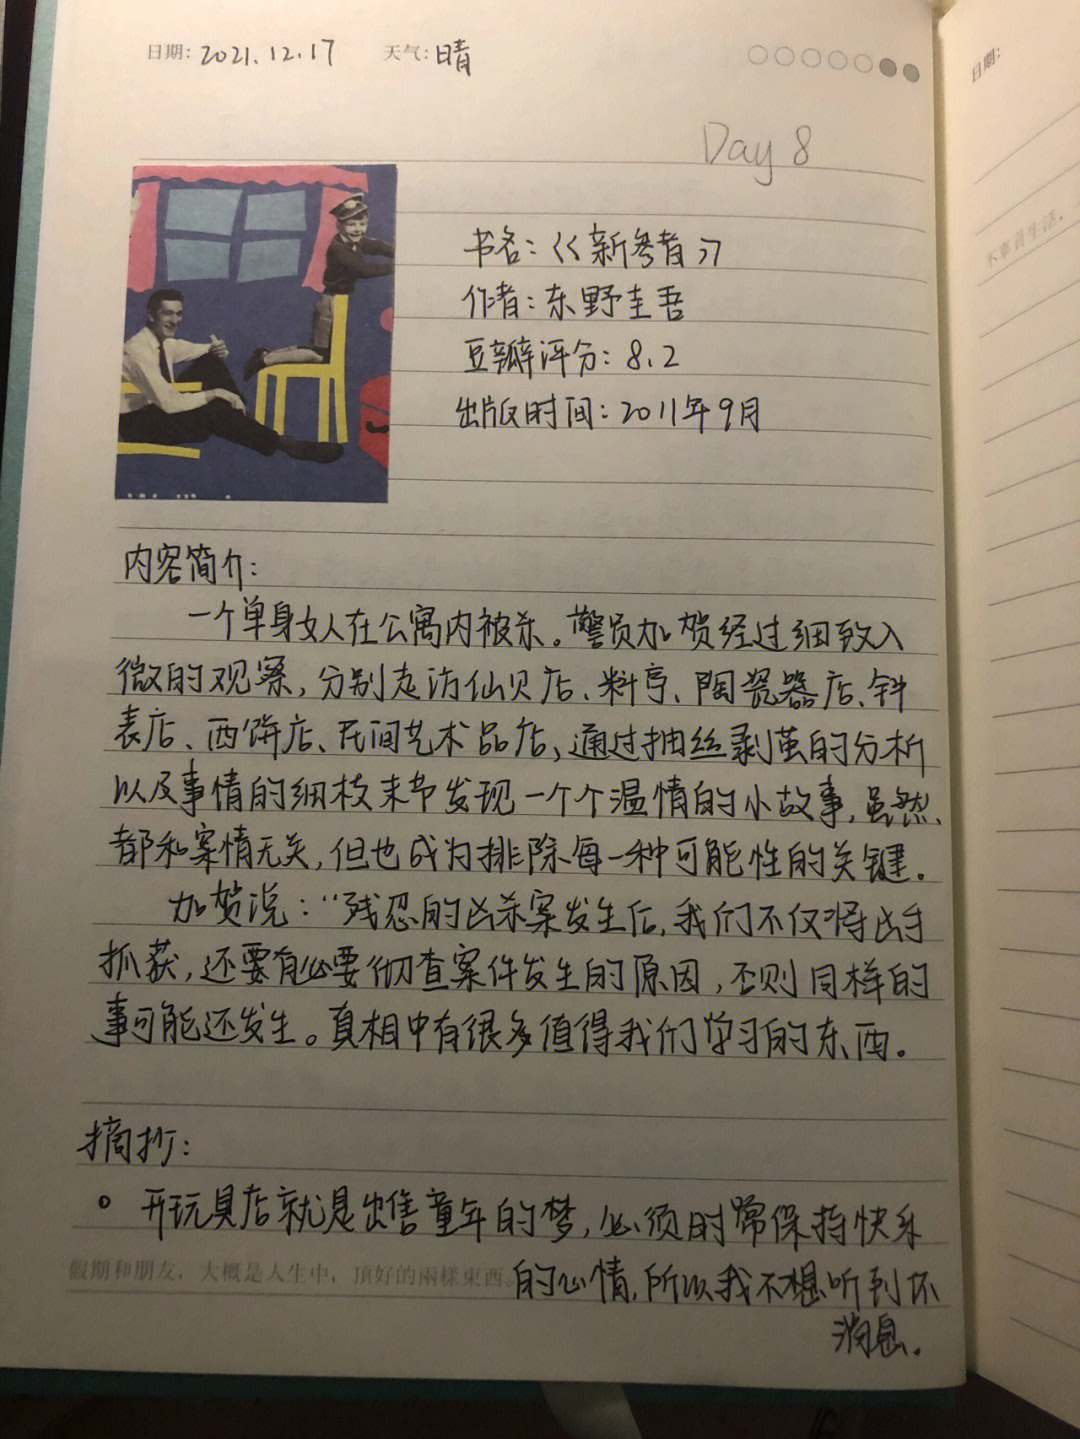 日期: 2021.12.17 天气: 晴
日期:
Day 8
书名:《新参者》
作者:东野圭吾
豆瓣评分:8.2
出版时间:2011年9月
内容简介:
一个单身女人在公寓内被杀。警员加贺经过细致入
微的观察,分别走访仙贝店、料亭、陶瓷器店、钟
表店、西饼店、民间艺术品店,通过抽丝剥茧的分析
以及事情的细枝末节发现一个个温情的小故事,虽然
都和案情无关,但也成为排除每一种可能性的关键。
加贺说:“残忍的凶杀案发生后,我们不仅得凶手
抓获,还要有必要彻查案件发生的原因,否则同样的
事可能还发生。真相中有很多值得我们学习的东西。
摘抄:
开玩具店就是出售童年的梦,必须时常保持快乐
假期和朋友,大概是人生中,頂好的兩樣東西。
的心情,所以我不想听到坏
消息。